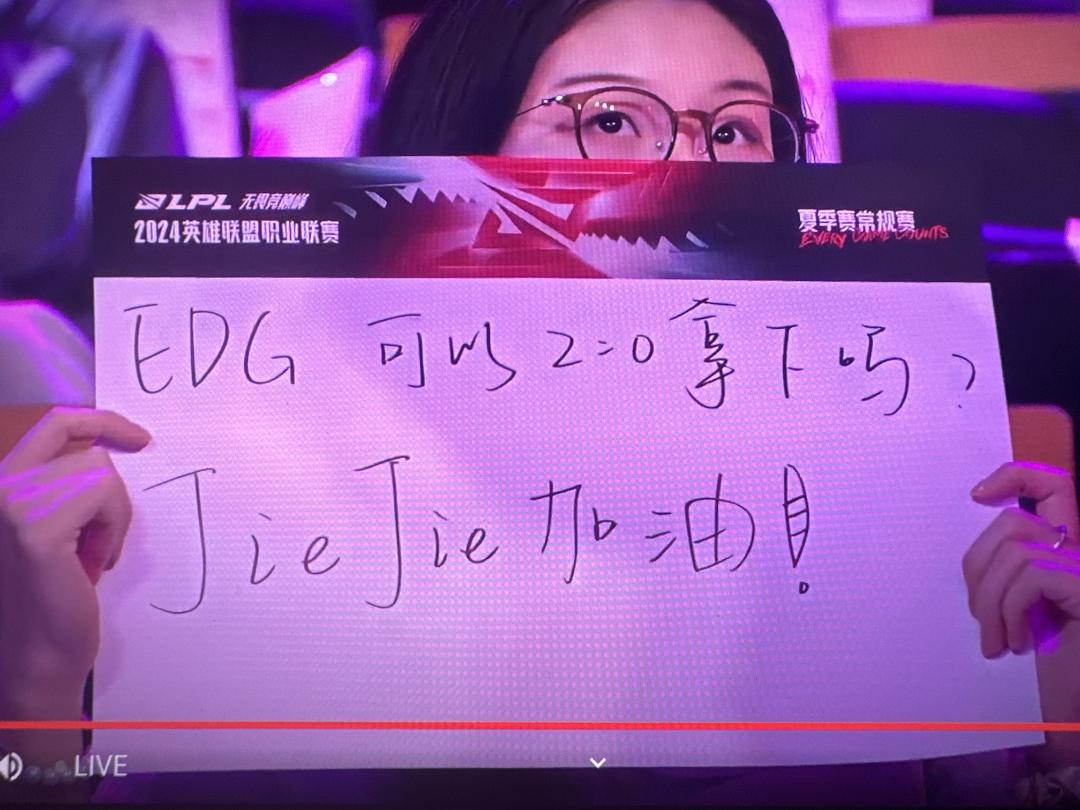 LPL 无畏竞巅峰
2024英雄联盟职业联赛
夏季赛常规赛
EVERY GAME COUNTS
EDG 可以 2:0 拿下吗?
JieJie 加油!
LIVE